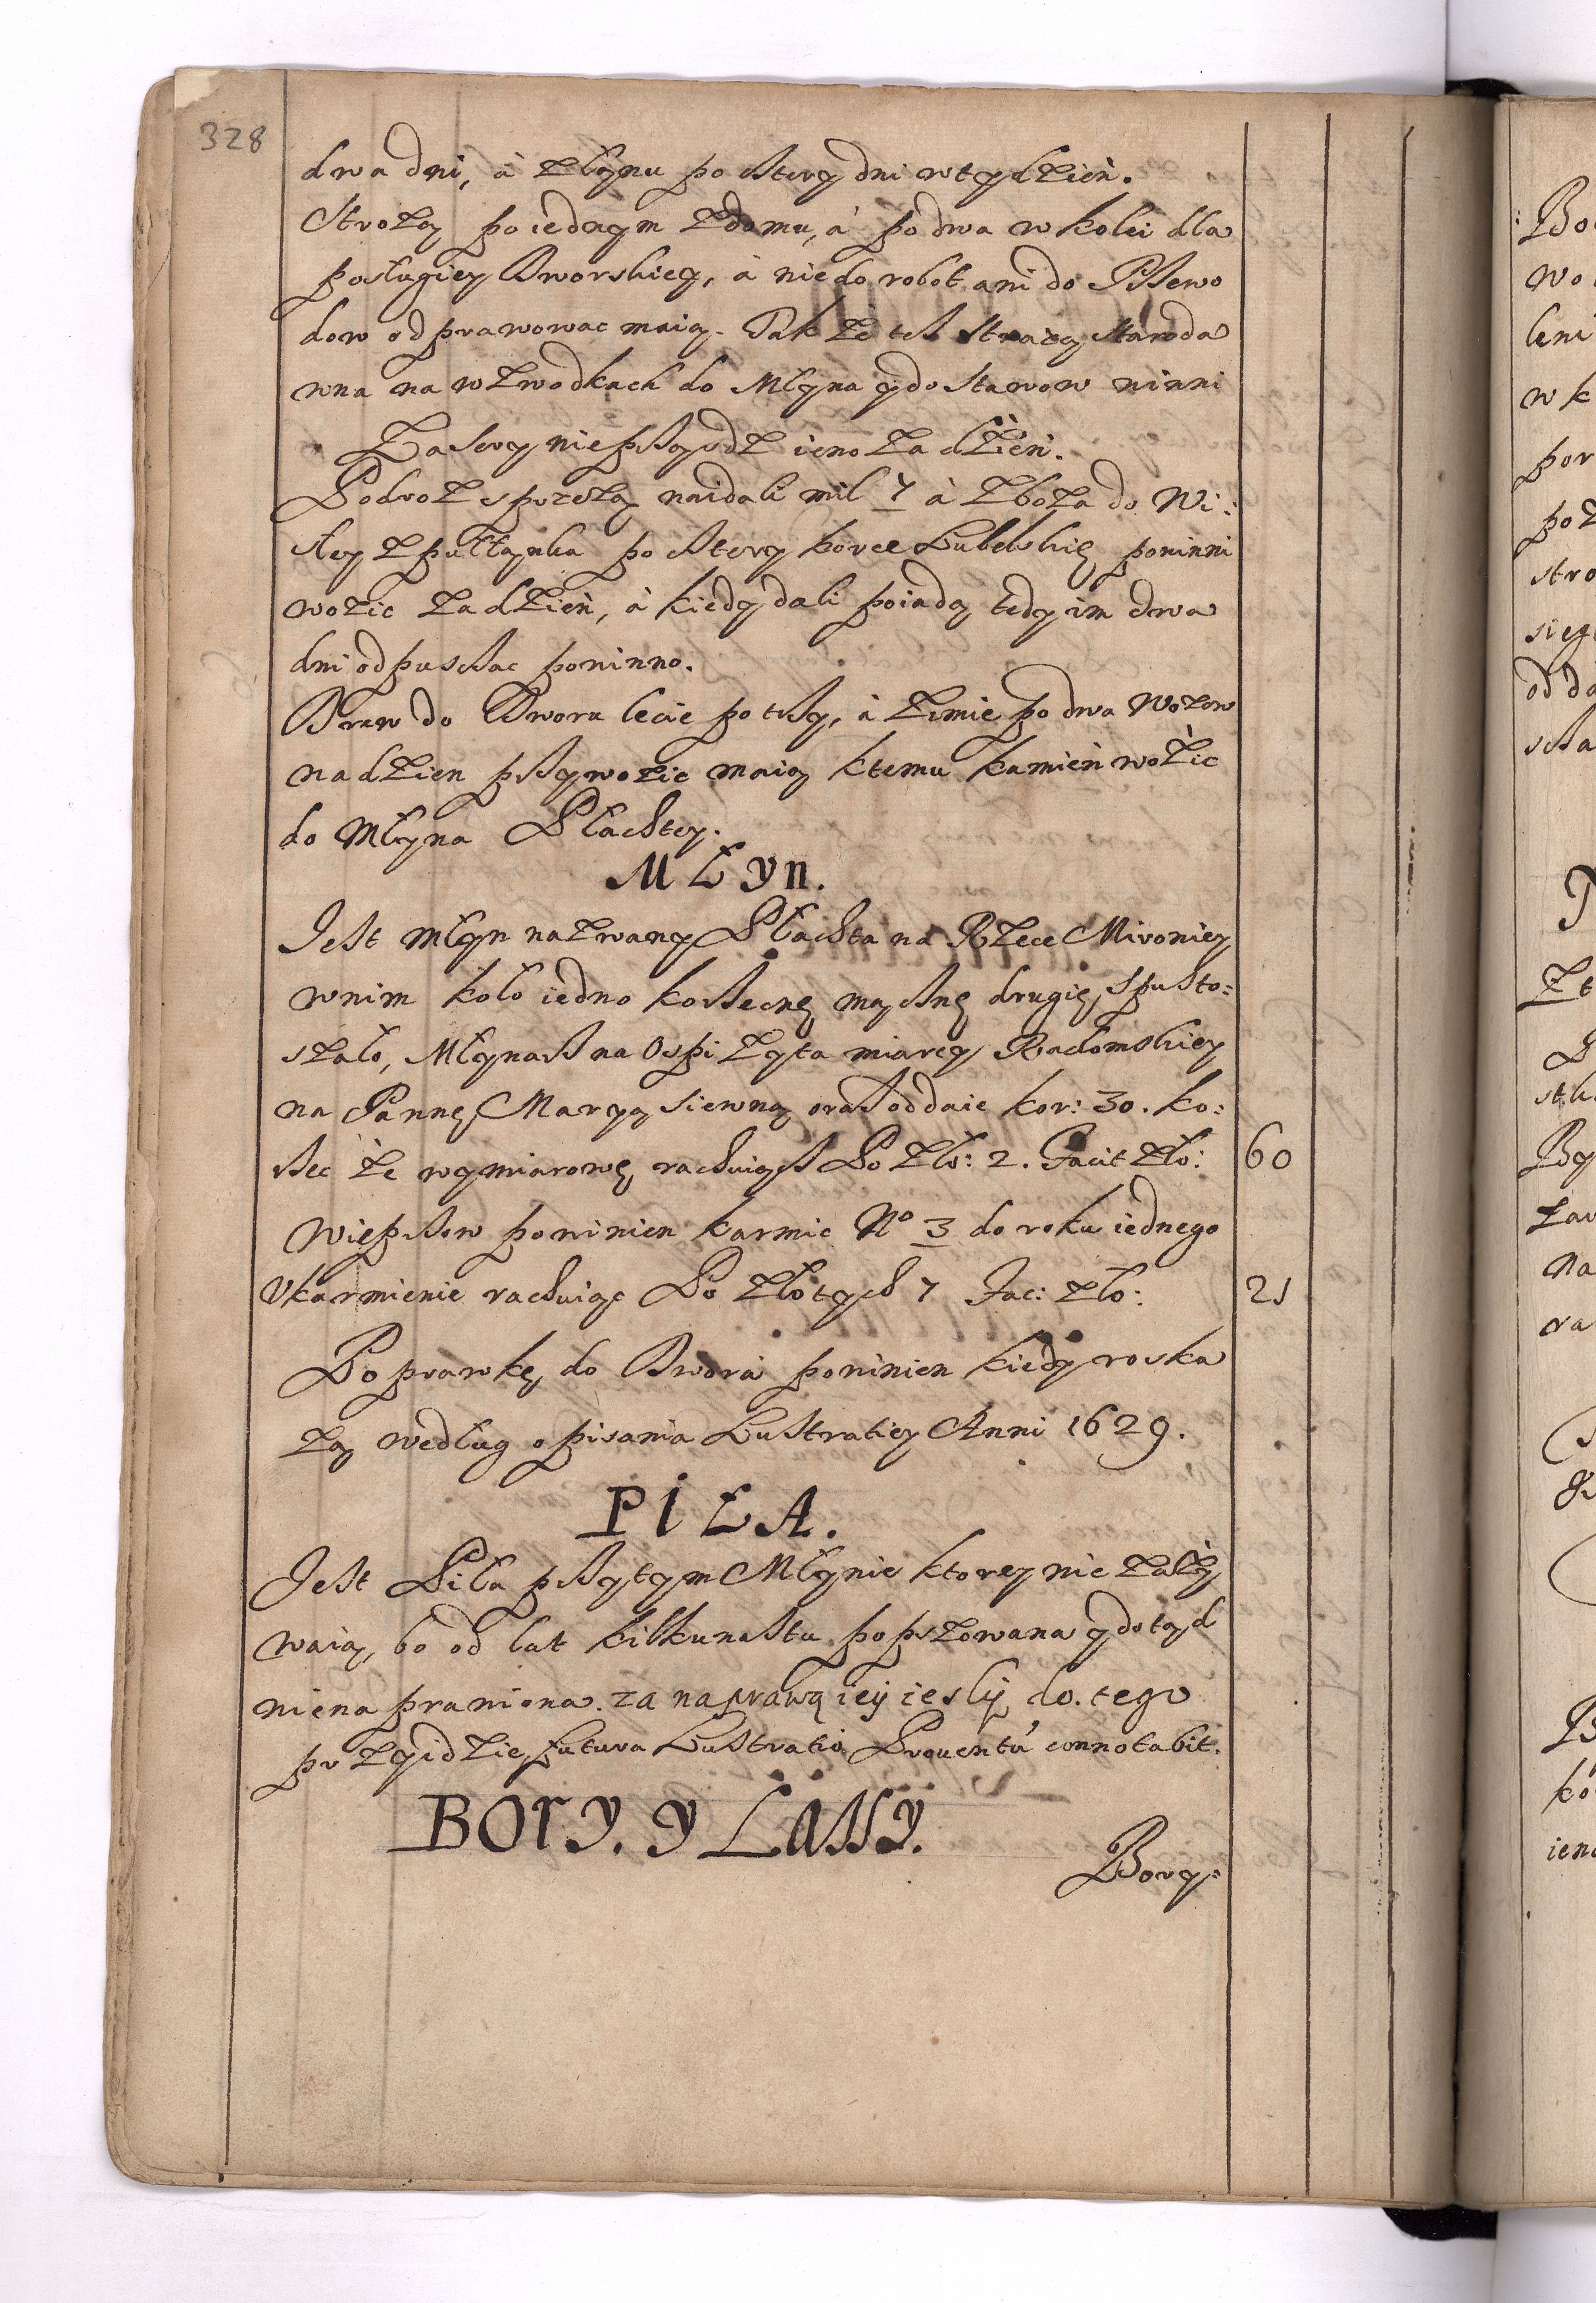 328
dwa dni, à z łąnu po cztery dni w tydzień.
Strożą po iednym z domu, à po dwa w kolei dla
posługiey Dworskiey, à nie do robot ani do Przewo
dow odprawowac maią. Także też strażą staroda
wna na wzwodkach do Młyna y do stawow winni
Zasiewy nieprzyidz ieno za dzień.
Podroż sprzężą naidali mil 7 à zboża do Wi:
sły z pułłąnka po cztery korce Lubelskię powinni
wozic za dzień, à kiedy dali poiadą tedy im dwa
dni odpusczac powinno.
Drew do Dwora lecie po trzy, à zimie po dwa wozow
na dzien przywozic maią k temu kamień woźic
do Młyna Płachtey.
MŁyn.
Jest młyn nazwany Płachta na Rzece Mironiey
w nim koło iedno korzecnę mącznę drugię, spusto:
szało, Młynarz na Ospi żyta miarey Radomskiey
na Pannę Maryą siewną oraz oddaie kor: 30. ko:
rzec ze wymiarowę, rachuiąc Po zło: 2. Facit zło: 60
Wieprzow powinien karmic No 3 do roku iednego
Vkarmienie rachuiąc Po złotych 7 Fac: zło: 21
Poprawkę, do Dwora powinien kiedy roska
żą według opisania Lustratiey Anni 1629.
PIŁA.
Jest Piła przy tym Młynie ktorey nie zaży
waią, bo od lat kilkunastu popszowana y do tąd
nie naprawiona. za naprawą ieÿ iesliÿ do. tego
przyidzie, futura Lustratio Prouentu connotabit.
BOrY. Y LASSY.
Bory: